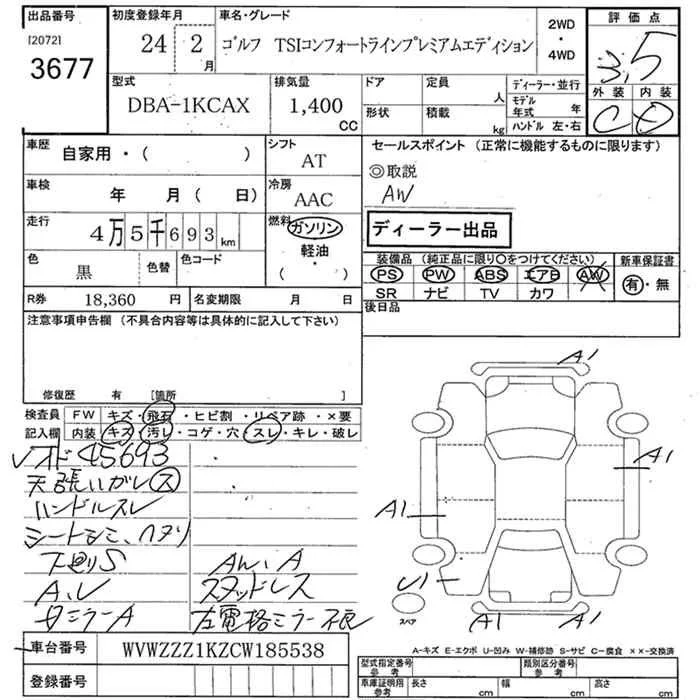 出品番号
[2072]
3677
初度登録年月
24 2
月
車名・グレード
ゴルフ TSIコンフォートラインプレミアムエディション
2WD
・
4WD
評価点
3.5
外装 内装
C D
型式
DBA-1KCAX
排気量
1,400
CC
ドア
定員
人
形状
積載
kg
ディーラー・並行
モデル年式 年
ハンドル 左・右
車歴
自家用・( )
シフト
AT
車検
年 月( 日)
冷房
AAC
走行
4万5千693km
燃料
ガソリン
軽油・
( )
色
黒
色替
色コード
R券 18,360 円
名変期限 月 日
セールスポイント (正常に機能するものに限ります)
◎取説
AW
ディーラー出品
装備品 (純正品に限り○をつけてください)
PS PW ABS エアB AW
SR ナビ TV カワ
新車保証書
有・無
後日品
注意事項申告欄 (不具合内容等は具体的に記入して下さい)
修復歴 有 [箇所 ]
検査員記入欄
FW キズ・飛石・ヒビ割・リペア跡・×要
内装 キズ・汚レ・コゲ・穴・スレ・キレ・破レ
ソオド45693
天張ハガレ ス
ハンドルスレ
シートシミ、ヘタリ
下廻りS
A.U
Aル、A
スタッドレス
左電格ミラー不良
A1
A1
A1
U1
A1 A1
スペア
A-キズ E-エクボ U-凹み W-補修跡 S-サビ C-腐食 ××-交換済
車台番号 WVWZZZ1KZCW185538
登録番号
型式指定番号
参考
類別区分番号
参考
車庫証明用
参考
長さ cm
幅 cm
高さ cm